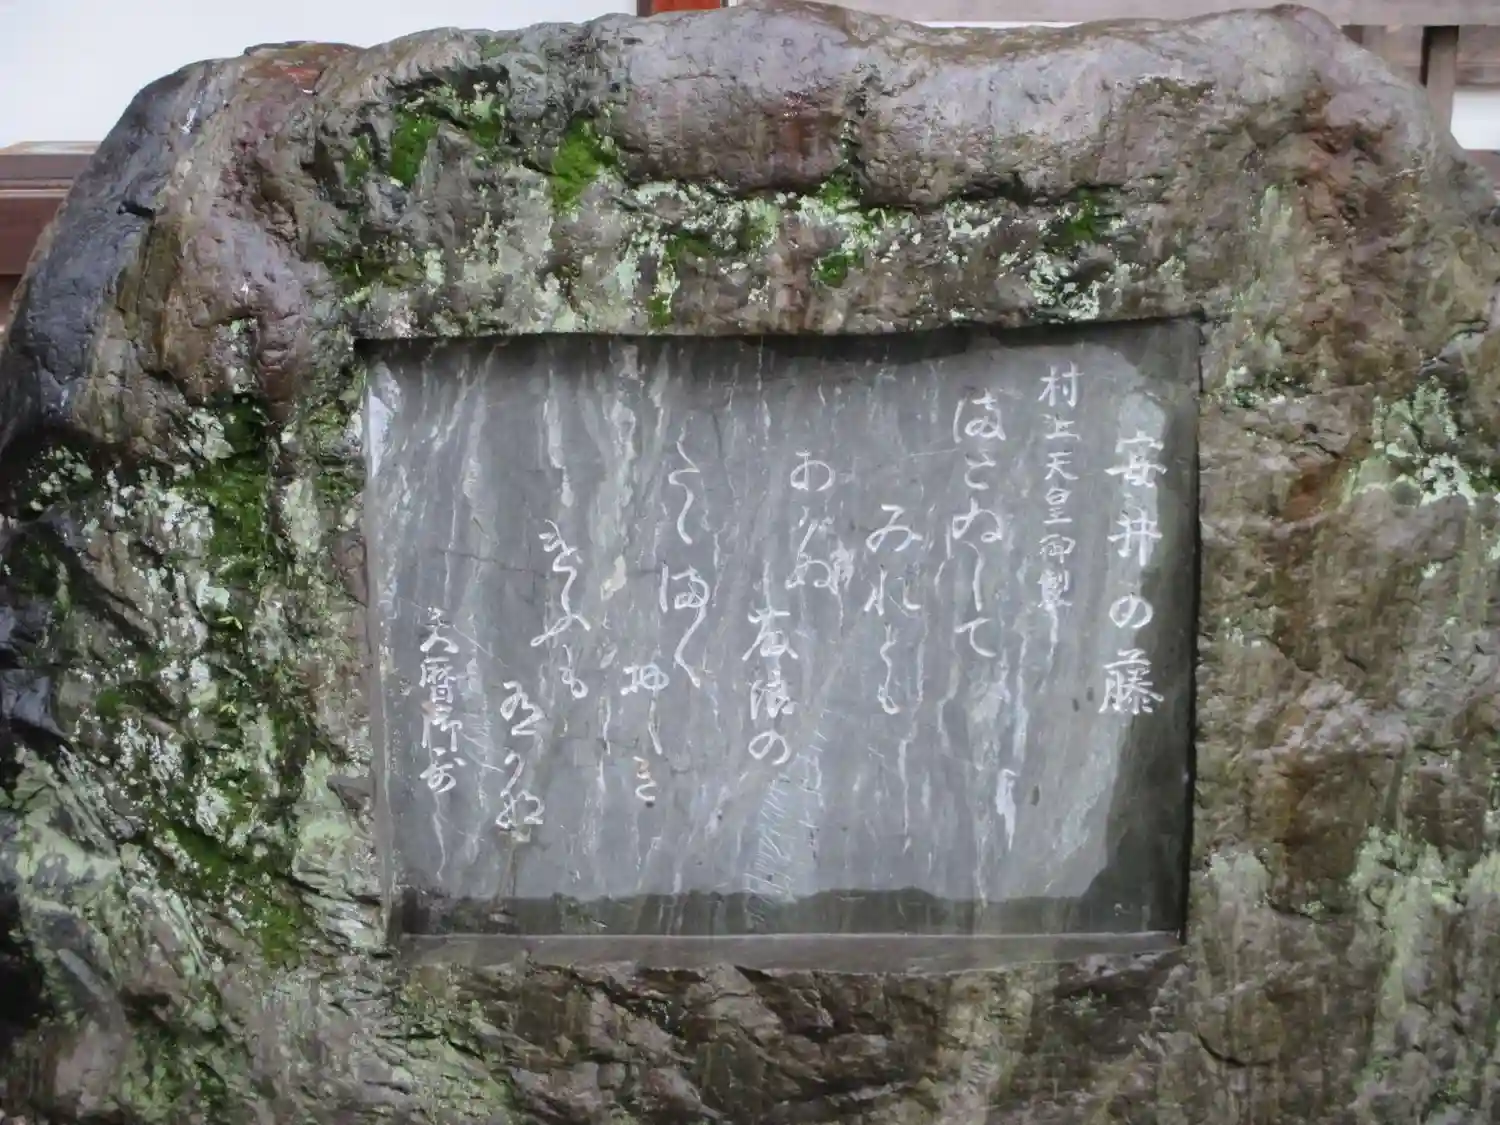 安井の藤
村上天皇御製
まとゐして
みれとも
あかぬ
藤浪の
たゝまく
おしき
けふにも
有かな
天暦御哥